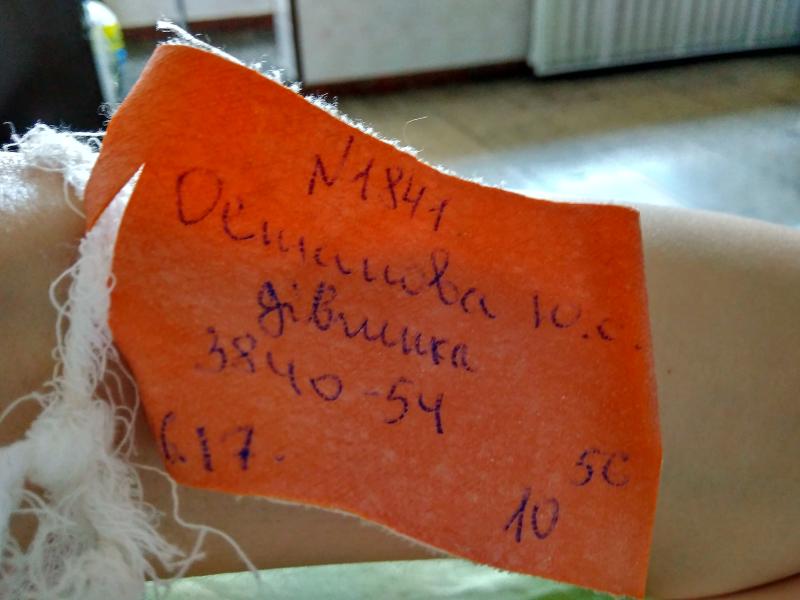 N1841.
Остапова Ю.С.
дівчинка
3840-54
6.17.
5С
10